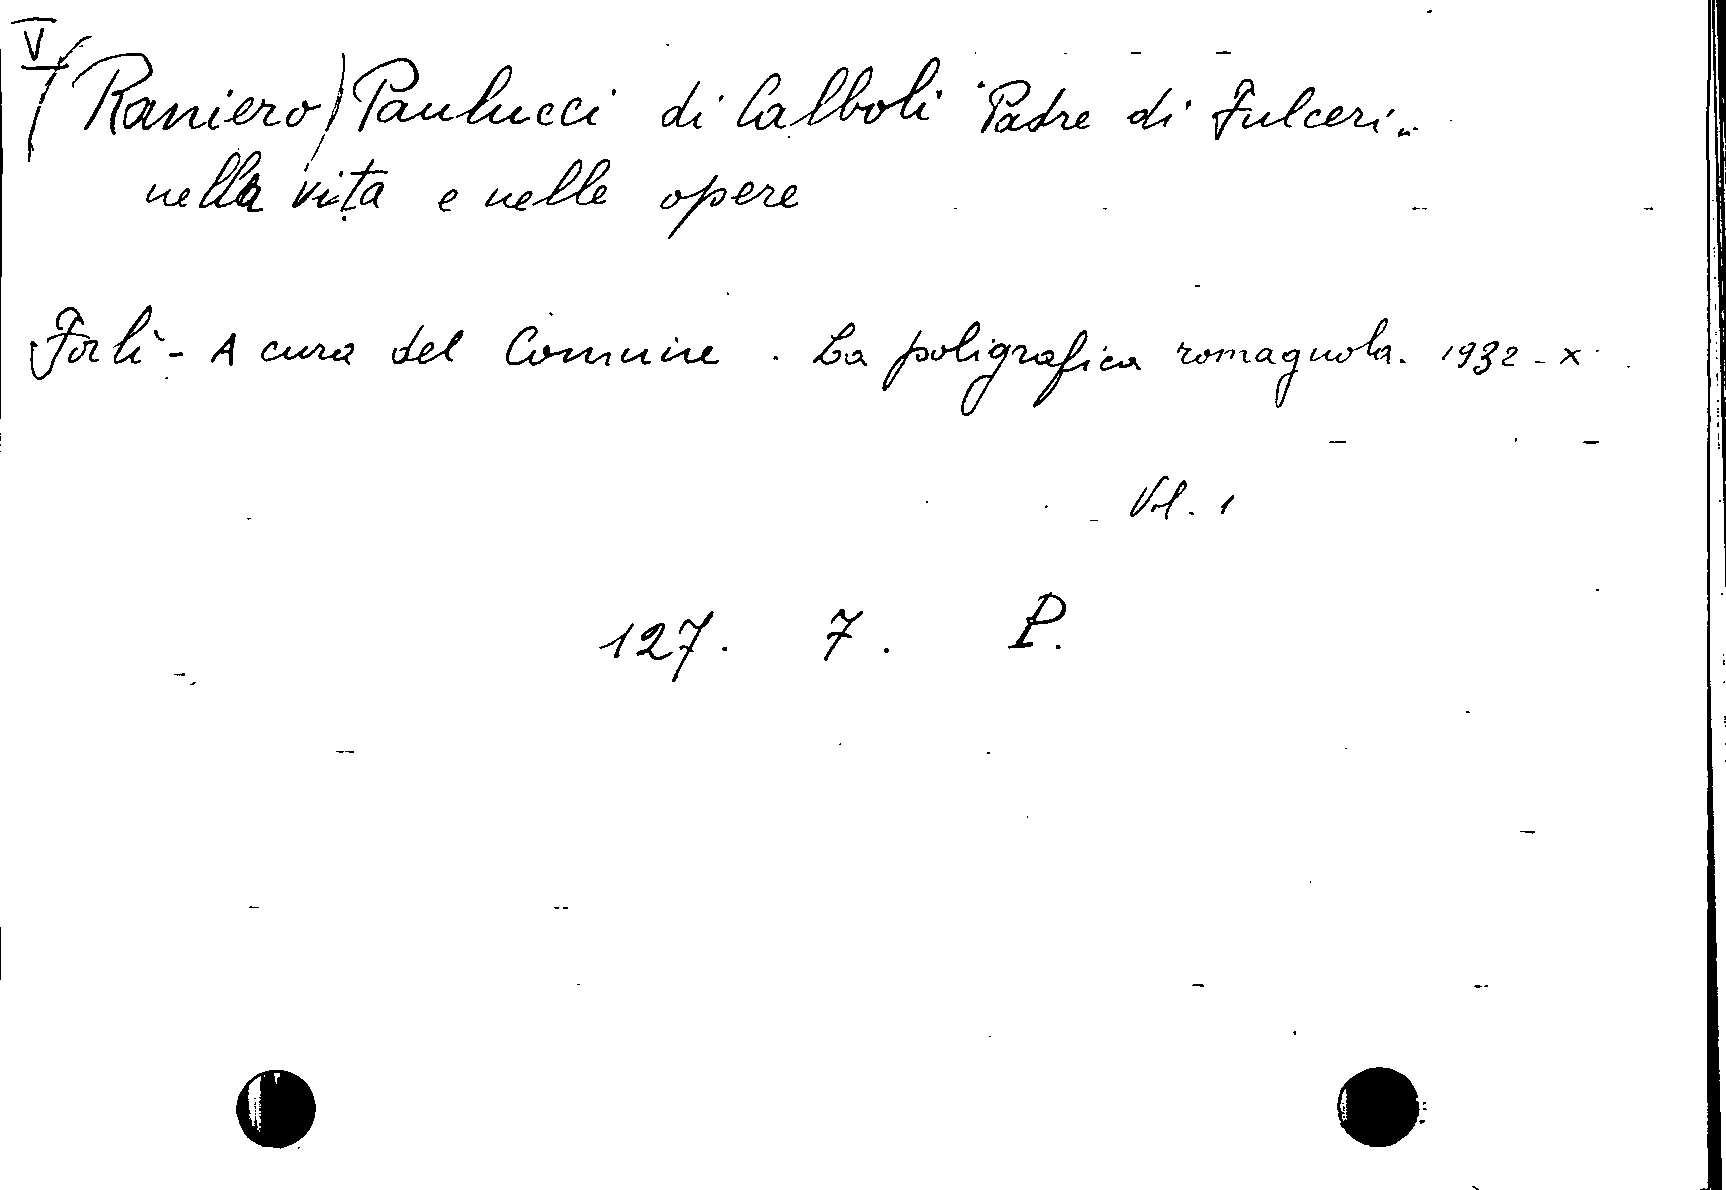 V
(Raniero) Paulucci di Calboli "Padre di Fulceri"
nella vita e nelle opere
Forlì - A cura del Comune. La poligrafica romagnola. 1932 - X
Vol. 1
127. 7. P.